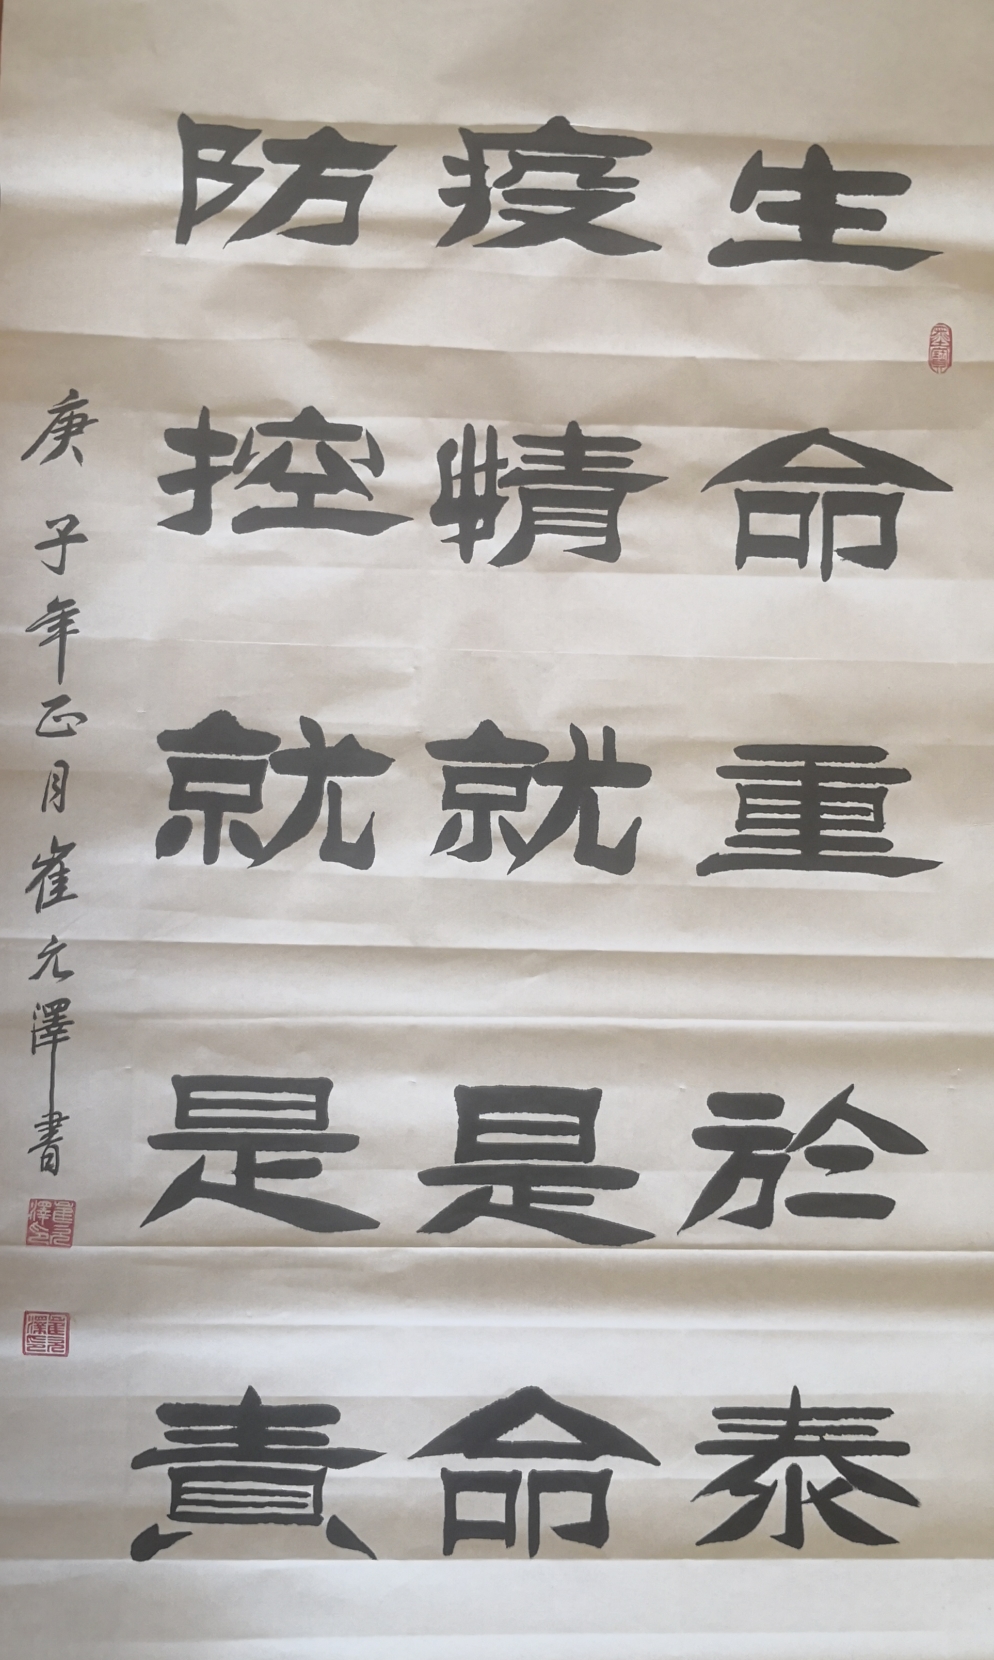 生命重於泰
疫情就是命
防控就是責
庚子年正月崔元澤書